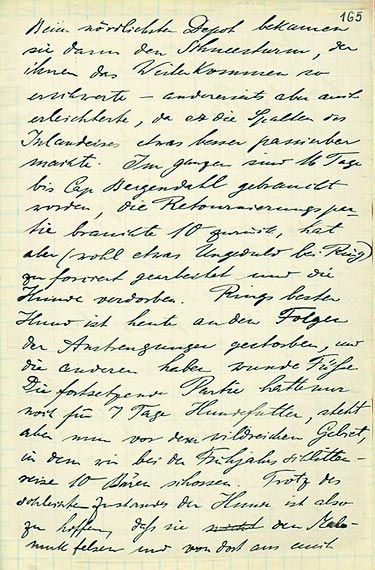 165
Beim nördlichsten Depot bekamen
sie dann den Schneesturm, der
ihnen das Weiterkommen so
erschwerte – andererseits aber auch
erleichterte, da er die Spalten des
Inlandeises etwas besser passierbar
machte. Im ganzen sind 16 Tage
bis Cap Bergendahl gebraucht
worden, die Retournierungspar-
tie brauchte 10 zurück, hat
aber (wohl etwas Ungeduld bei Ring)
zu forciert gearbeitet und die
Hunde verdorben. Rings bester
Hund ist heute an den Folgen
der Anstrengungen gestorben, und
die anderen haben wunde Füße
Die fortsetzende Partie hatte nur
noch für 7 Tage Hundefutter, steht
aber nun vor dem wildreichen Gebiet,
in dem wir bei der Frühjahrsschlitten-
reise 10 Bären schossen. Trotz des
schlechten Zustandes der Hunde ist also
zu hoffen, daß sie den Male-
mukfelsen und von dort aus auch